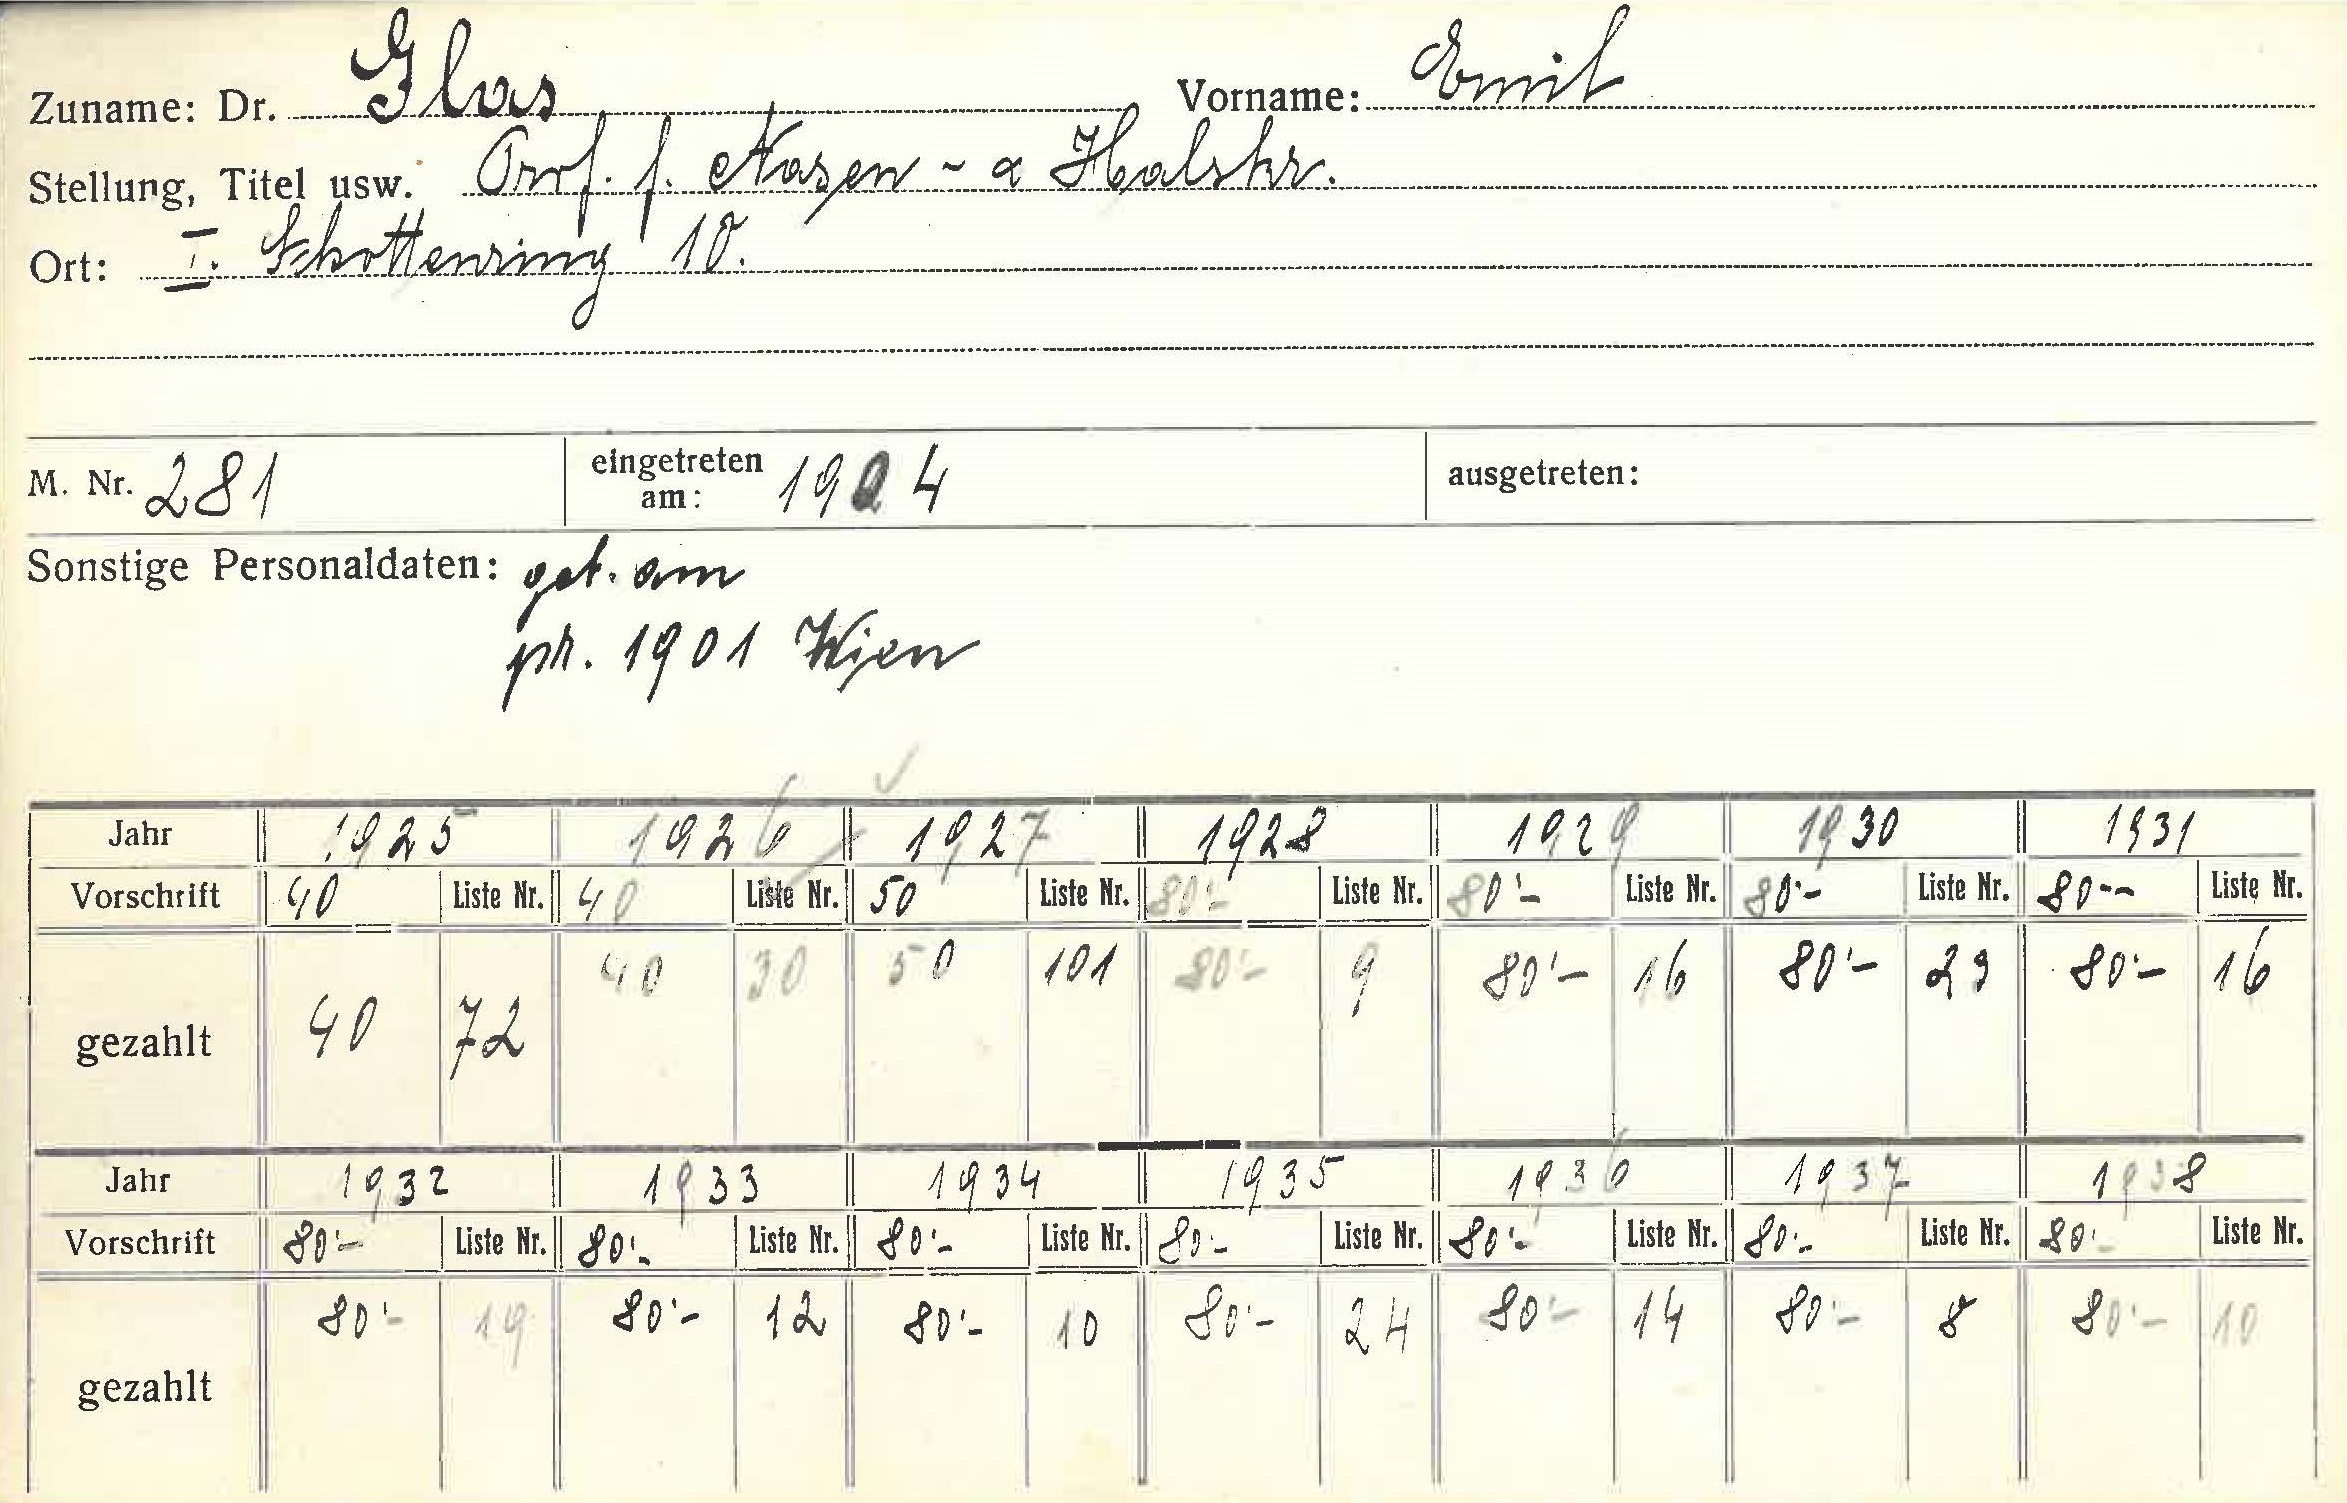 Zuname: Dr. Glas Vorname: Emil
Stellung, Titel usw. Prof. f. Nasen- & Halskr.
Ort: I. Schottenring 10.
M. Nr. 281 eingetreten am: 1904 ausgetreten:
Sonstige Personaldaten: geb. am
pr. 1901 Wien
Jahr 1925 1926 1927 1928 1929 1930 1931
Vorschrift 40 Liste Nr. 40 Liste Nr. 50 Liste Nr. 80·- Liste Nr. 80·- Liste Nr. 80·- Liste Nr. 80-- Liste Nr.
gezahlt 40 72 40 30 50 101 80·- 9 80·- 16 80·- 23 80·- 16
Jahr 1932 1933 1934 1935 1936 1937 1938
Vorschrift 80·- Liste Nr. 80·- Liste Nr. 80·- Liste Nr. 80·- Liste Nr. 80·- Liste Nr. 80·- Liste Nr. 80·- Liste Nr.
gezahlt 80·- 19 80·- 12 80·- 10 80·- 24 80·- 14 80·- 8 80·- 10